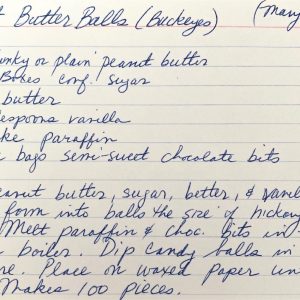 Butter Balls (Buckeyes) (Mary
or plain peanut butter
conf. sugar
butter
vanilla
paraffin
bags semi-sweet chocolate bits
butter, sugar, better, &
form into balls the size of
Melt paraffin & choc. bits in
boiler. Dip candy balls in
Place on waxed paper
Makes 100 pieces.